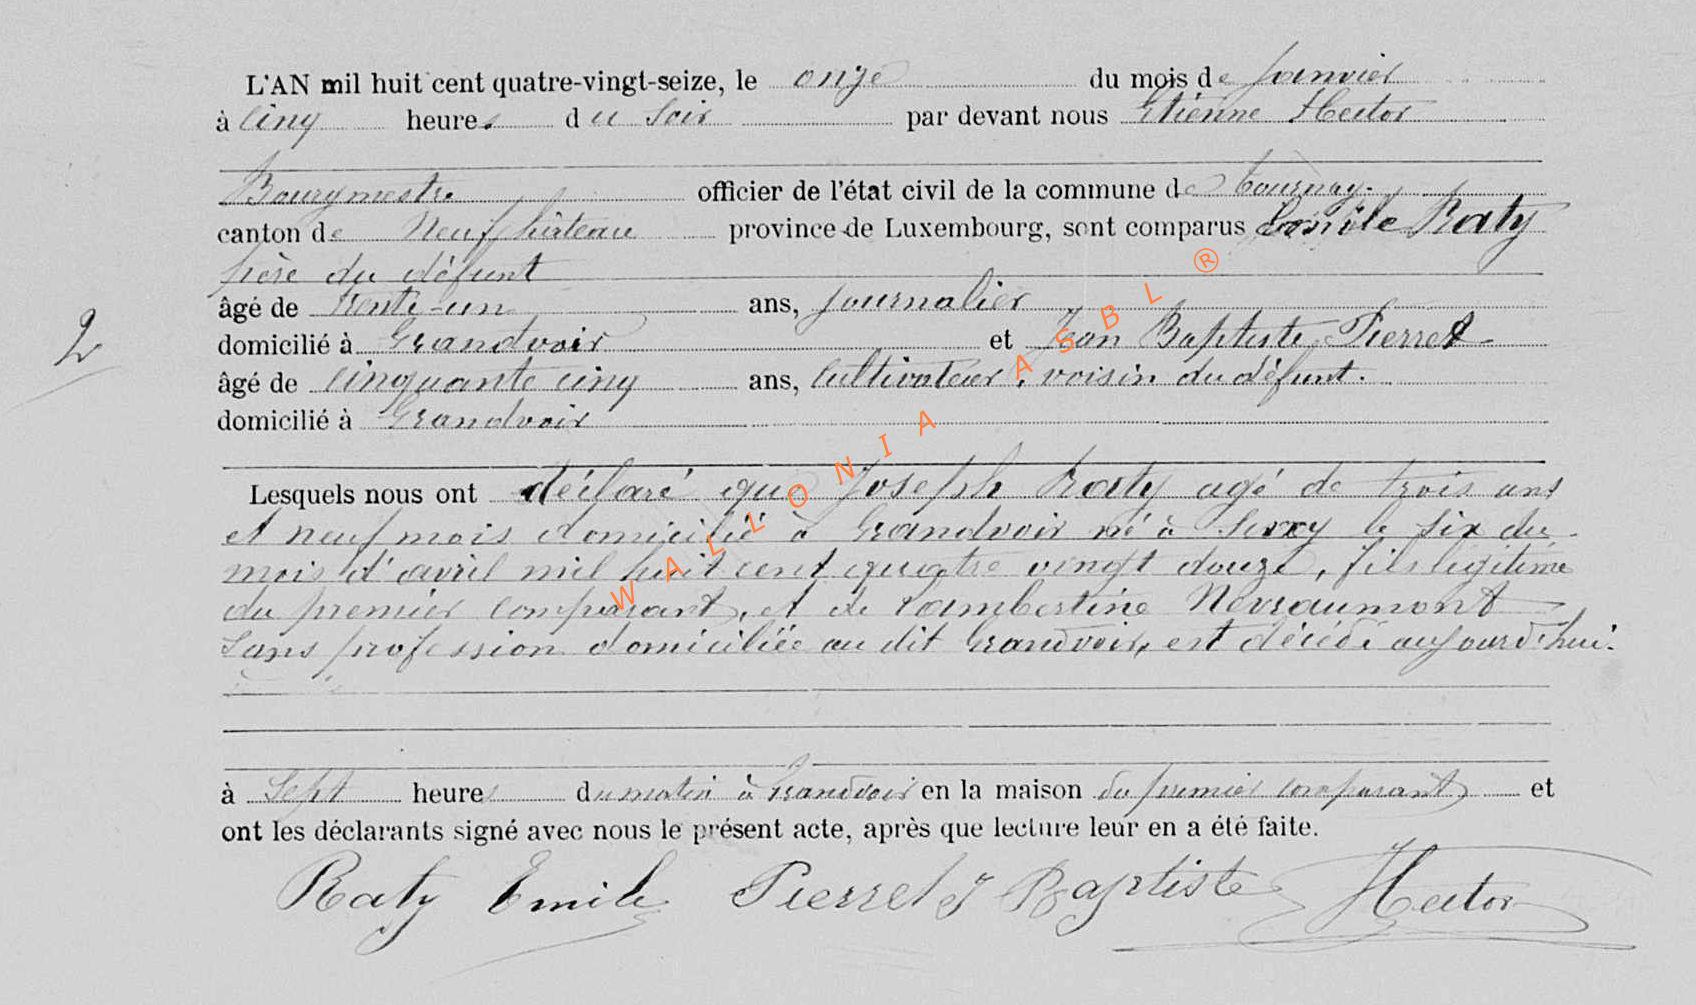 L'AN mil huit cent quatre-vingt-seize, le onze du mois de Janvier
à cinq heures du soir par devant nous Etienne Hector
Bourgmestre officier de l'état civil de la commune de Tournay
canton de Neufchâteau province de Luxembourg, sont comparus Raty
père du défunt
âgé de trente-un ans, journalier
domicilié à Grandvoir et Jean Baptiste Pierret
2
âgé de cinquante cinq ans, cultivateur, voisin du défunt.
domicilié à Grandvoir
Lesquels nous ont déclaré que Joseph Raty agé de trois ans
et neuf mois domicilié à Grandvoir né à le six du
mois d'avril mil huit cent quatre vingt douze, fils légitime
du premier comparant, et de Lambertine Nevraumont
sans profession domiciliée au dit Grandvoir, est décédé aujourd'hui.
à sept heures du matin à Grandvoir en la maison du premier comparant et
ont les déclarants signé avec nous le présent acte, après que lecture leur en a été faite.
Raty Emile Pierret J Baptiste Hector
WALLONIA ASBL ®